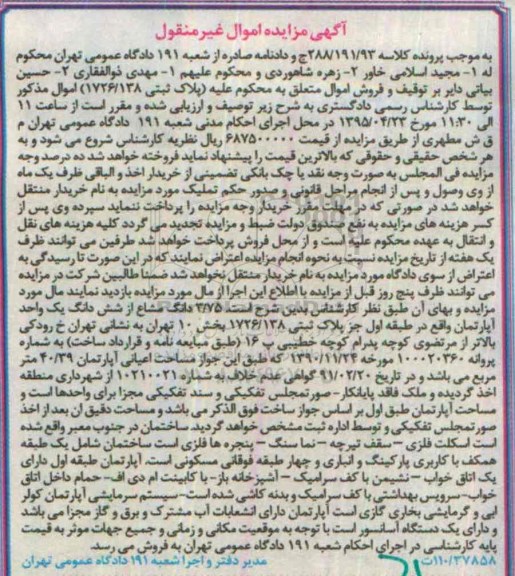 آگهی مزایده اموال غیرمنقول
به موجب پرونده کلاسه ۲۸۸/۱۹۱/۹۳ج و دادنامه صادره از شعبه ۱۹۱ دادگاه عمومی تهران محکوم
له ۱- مجید اسلامی خاور ۲- زهره شاهوردی و محکوم علیهم ۱- مهدی ذوالفقاری ۲- حسین
بیاتی دایر بر توقیف و فروش اموال متعلق به محکوم علیه (پلاک ثبتی ۱۷۲۶/۱۳۸) اموال مذکور
توسط کارشناس رسمی دادگستری به شرح زیر توصیف و ارزیابی شده و مقرر است از ساعت ۱۱
الی ۱۱:۳۰ مورخ ۱۳۹۵/۰۴/۲۳ در محل اجرای احکام مدنی شعبه ۱۹۱ دادگاه عمومی تهران م
ق ش مطهری از طریق مزایده از قیمت ۶۸۷۵۰۰۰۰۰ ریال نظریه کارشناس شروع می شود و به
هر شخص حقیقی و حقوقی که بالاترین قیمت را پیشنهاد نماید فروخته خواهد شد ده درصد وجه
مزایده فی المجلس به صورت وجه نقد یا چک بانکی تضمینی از خریدار اخذ و الباقی ظرف یک ماه
از وی وصول و پس از انجام مراحل قانونی و صدور حکم تملیک مورد مزایده به نام خریدار منتقل
خواهد شد در صورتی که در مهلت مقرر خریدار وجه مزایده را پرداخت ننماید سپرده وی پس از
کسر هزینه های مزایده به نفع صندوق دولت ضبط و مزایده تجدید می گردد کلیه هزینه های نقل
و انتقال به عهده محکوم علیه است و از محل فروش پرداخت خواهد شد طرفین می توانند ظرف
یک هفته از تاریخ مزایده نسبت به نحوه انجام مزایده اعتراض نمایند که در این صورت تا رسیدگی به
اعتراض از سوی دادگاه مورد مزایده به نام خریدار منتقل نخواهد شد ضمنا طالبین شرکت در مزایده
می توانند ظرف پنج روز قبل از مزایده با اطلاع این اجرا از مال مورد مزایده بازدید نمایند مال مورد
مزایده و بهای آن طبق نظر کارشناس بدین شرح است: ۳/۷۵ دانگ مشاع از شش دانگ یک واحد
آپارتمان واقع در طبقه اول جز پلاک ثبتی ۱۷۲۶/۱۳۸ بخش ۱۰ تهران به نشانی تهران خ رودکی
بالاتر از مرتضوی کوچه پدرام کوچه خطیبی پ ۱۶ (طبق مبایعه نامه و قرارداد ساخت) به شماره
پروانه ۱۰۰۰۲۰۳۶۰ مورخه ۱۳۹۰/۱۱/۲۴ که طبق این جواز مساحت اعیانی آپارتمان ۴۰/۳۹ متر
مربع می باشد و در تاریخ ۹۱/۰۲/۲۰ گواهی عدم خلاف به شماره ۱۰۲۱۰۰۲۱ از شهرداری منطقه
اخذ گردیده و ملک فاقد پایانکار- صورتمجلس تفکیکی و سند تفکیکی مجزا برای واحدها است و
مساحت آپارتمان طبق اول بر اساس جواز ساخت فوق الذکر می باشد و مساحت دقیق آن بعد از اخذ
صورتمجلس تفکیکی و توسط اداره ثبت مشخص خواهد گردید. ساختمان در جنوب معبر واقع شده
است اسکلت فلزی – سقف تیرچه – نما سنگ – پنجره ها فلزی است ساختمان شامل یک طبقه
همکف با کاربری پارکینگ و انباری و چهار طبقه فوقانی مسکونی است. آپارتمان طبقه اول دارای
یک اتاق خواب – نشیمن با کف سرامیک – آشپزخانه باز- با کابینت ام دی اف- حمام داخل اتاق
خواب- سرویس بهداشتی با کف سرامیک و بدنه کاشی شده است- سیستم سرمایشی آپارتمان کولر
ابی و گرمایشی بخاری گازی است آپارتمان دارای انشعابات آب مشترک و برق و گاز مجزا می باشد
و دارای یک دستگاه آسانسور است با توجه به موقعیت مکانی و زمانی و جمیع جهات موثر به قیمت
پایه کارشناسی در اجرای احکام شعبه ۱۹۱ دادگاه عمومی تهران به فروش می رسد.
۱۱۰/۳۷۸۵۸ت مدیر دفتر و اجرا شعبه ۱۹۱ دادگاه عمومی تهران